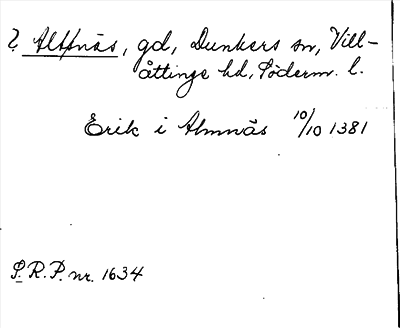 ? Altnäs, gd, Dunkers sn, Vill-
åttinge hd, Söderm. l.
Erik i Almnäs 10/10 1381
S.R.P. nr. 1634